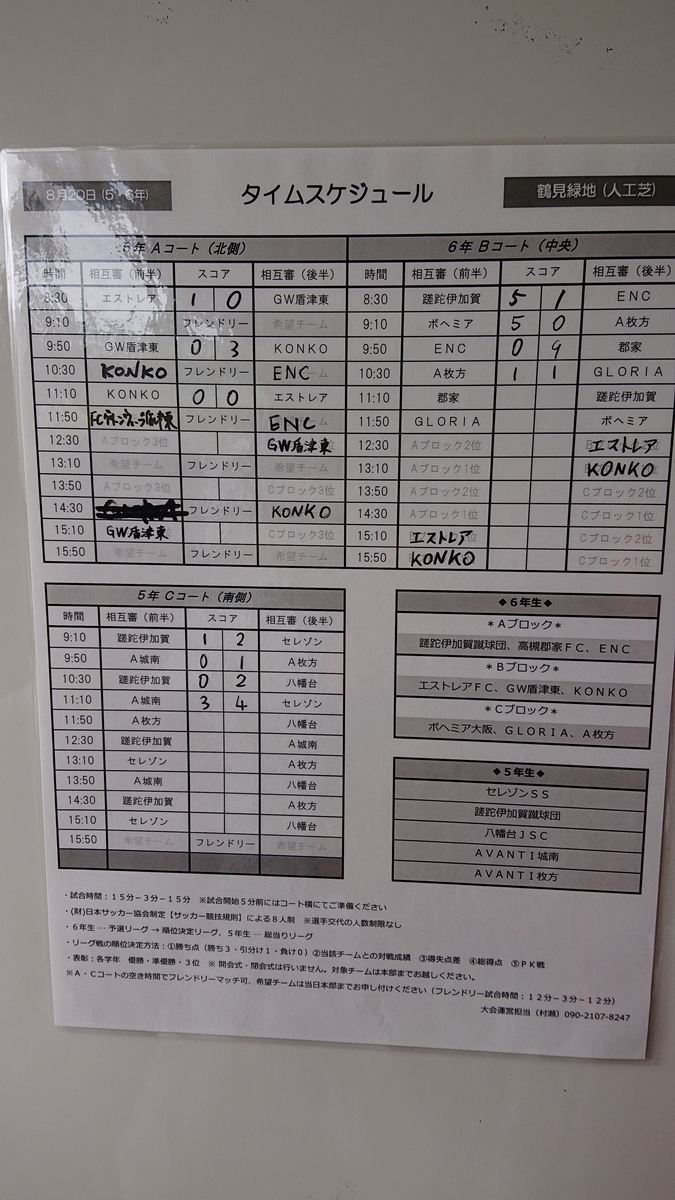 8月20日 (5・6年) タイムスケジュール 鶴見緑地 (人工芝)
5年 Aコート (北側) 6年 Bコート (中央)
時間 相互審 (前半) スコア 相互審 (後半) 時間 相互審 (前半) スコア 相互審 (後半)
8:30 エストレア 1 0 GW盾津東 8:30 蹉跎伊加賀 5 1 ENC
9:10 フレンドリー 希望チーム 9:10 ボヘミア 5 0 A枚方
9:50 GW盾津東 0 3 KONKO 9:50 ENC 0 9 郡家
10:30 KONKO フレンドリー ENC 10:30 A枚方 1 1 GLORIA
11:10 KONKO 0 0 エストレア 11:10 郡家 蹉跎伊加賀
11:50 フレンドリー ENC 11:50 GLORIA ボヘミア
12:30 Aブロック3位 GW盾津東 12:30 Aブロック2位 エストレア
13:10 希望チーム フレンドリー 希望チーム 13:10 Aブロック1位 KONKO
13:50 Aブロック3位 Cブロック3位 13:50 Aブロック2位 Cブロック2位
14:30 フレンドリー KONKO 14:30 Aブロック1位 Cブロック1位
15:10 GW盾津東 Cブロック3位 15:10 エストレア Cブロック2位
15:50 希望チーム フレンドリー 希望チーム 15:50 KONKO Cブロック1位
5年 Cコート (南側)
時間 相互審 (前半) スコア 相互審 (後半)
9:10 蹉跎伊加賀 1 2 セレゾン
9:50 A城南 0 1 A枚方
10:30 蹉跎伊加賀 0 2 八幡台
11:10 A城南 3 4 セレゾン
11:50 A枚方 八幡台
12:30 蹉跎伊加賀 A城南
13:10 セレゾン A枚方
13:50 A城南 八幡台
14:30 蹉跎伊加賀 A枚方
15:10 セレゾン 八幡台
15:50 希望チーム フレンドリー 希望チーム
◆6年生◆
*Aブロック*
蹉跎伊加賀蹴球団、高槻郡家FC、ENC
*Bブロック*
エストレアFC、GW盾津東、KONKO
*Cブロック*
ボヘミア大阪、GLORIA、A枚方
◆5年生◆
セレゾンSS
蹉跎伊加賀蹴球団
八幡台JSC
AVANTI城南
AVANTI枚方
・試合時間：15分−3分−15分 ※試合開始5分前にはコート横にてご準備ください
・(財)日本サッカー協会制定【サッカー競技規則】による8人制 ※選手交代の人数制限なし
・6年生 … 予選リーグ → 順位決定リーグ、5年生 … 総当りリーグ
・リーグ戦の順位決定方法：①勝ち点（勝ち3・引分け1・負け0）②当該チームとの対戦成績 ③得失点差 ④総得点 ⑤PK戦
・表彰：各学年 優勝・準優勝・3位 ※ 開会式・閉会式は行いません。対象チームは本部までお越しください。
※A・Cコートの空き時間でフレンドリーマッチ可、希望チームは当日本部までお申し付けください（フレンドリー試合時間：12分−3分−12分）
大会運営担当（村瀬）090-2107-8247